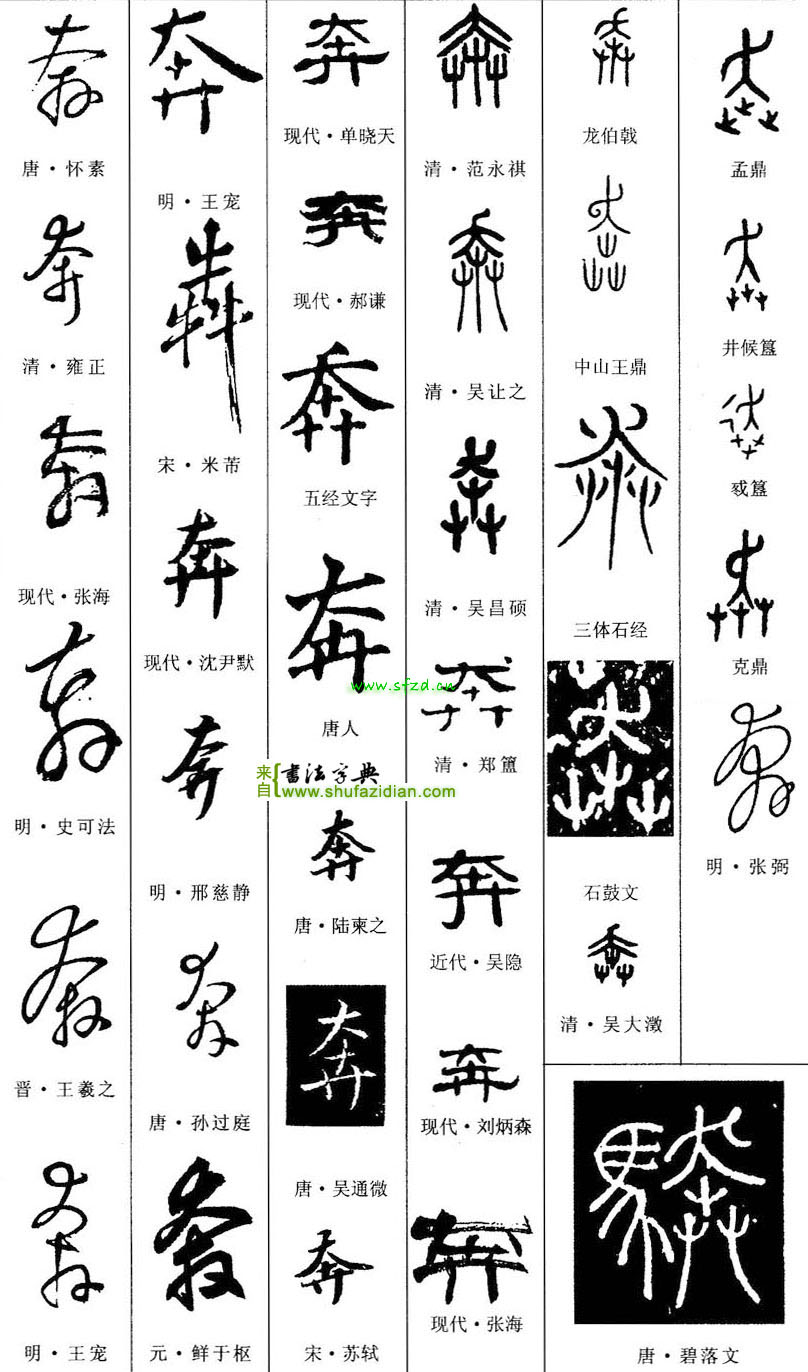 奔
唐·怀素
奔
清·雍正
奔
现代·张海
奔
明·史可法
奔
晋·王羲之
奔
明·王宠
奔
明·王宠
犇
宋·米芾
奔
现代·沈尹默
奔
明·邢慈静
奔
唐·孙过庭
奔
元·鲜于枢
奔
现代·单晓天
奔
现代·郝谦
奔
五经文字
奔
唐人
来自
书法字典
www.shufazidian.com
奔
唐·陆柬之
奔
唐·吴通微
奔
宋·苏轼
奔
清·范永祺
奔
清·吴让之
奔
清·吴昌硕
www.sfzd.cn
奔
清·郑簠
奔
近代·吴隐
奔
现代·刘炳森
奔
现代·张海
奔
龙伯戟
奔
中山王鼎
奔
三体石经
奔
石鼓文
奔
清·吴大澂
奔
孟鼎
奔
井候簋
奔
簋
奔
克鼎
奔
明·张弼
唐·碧落文